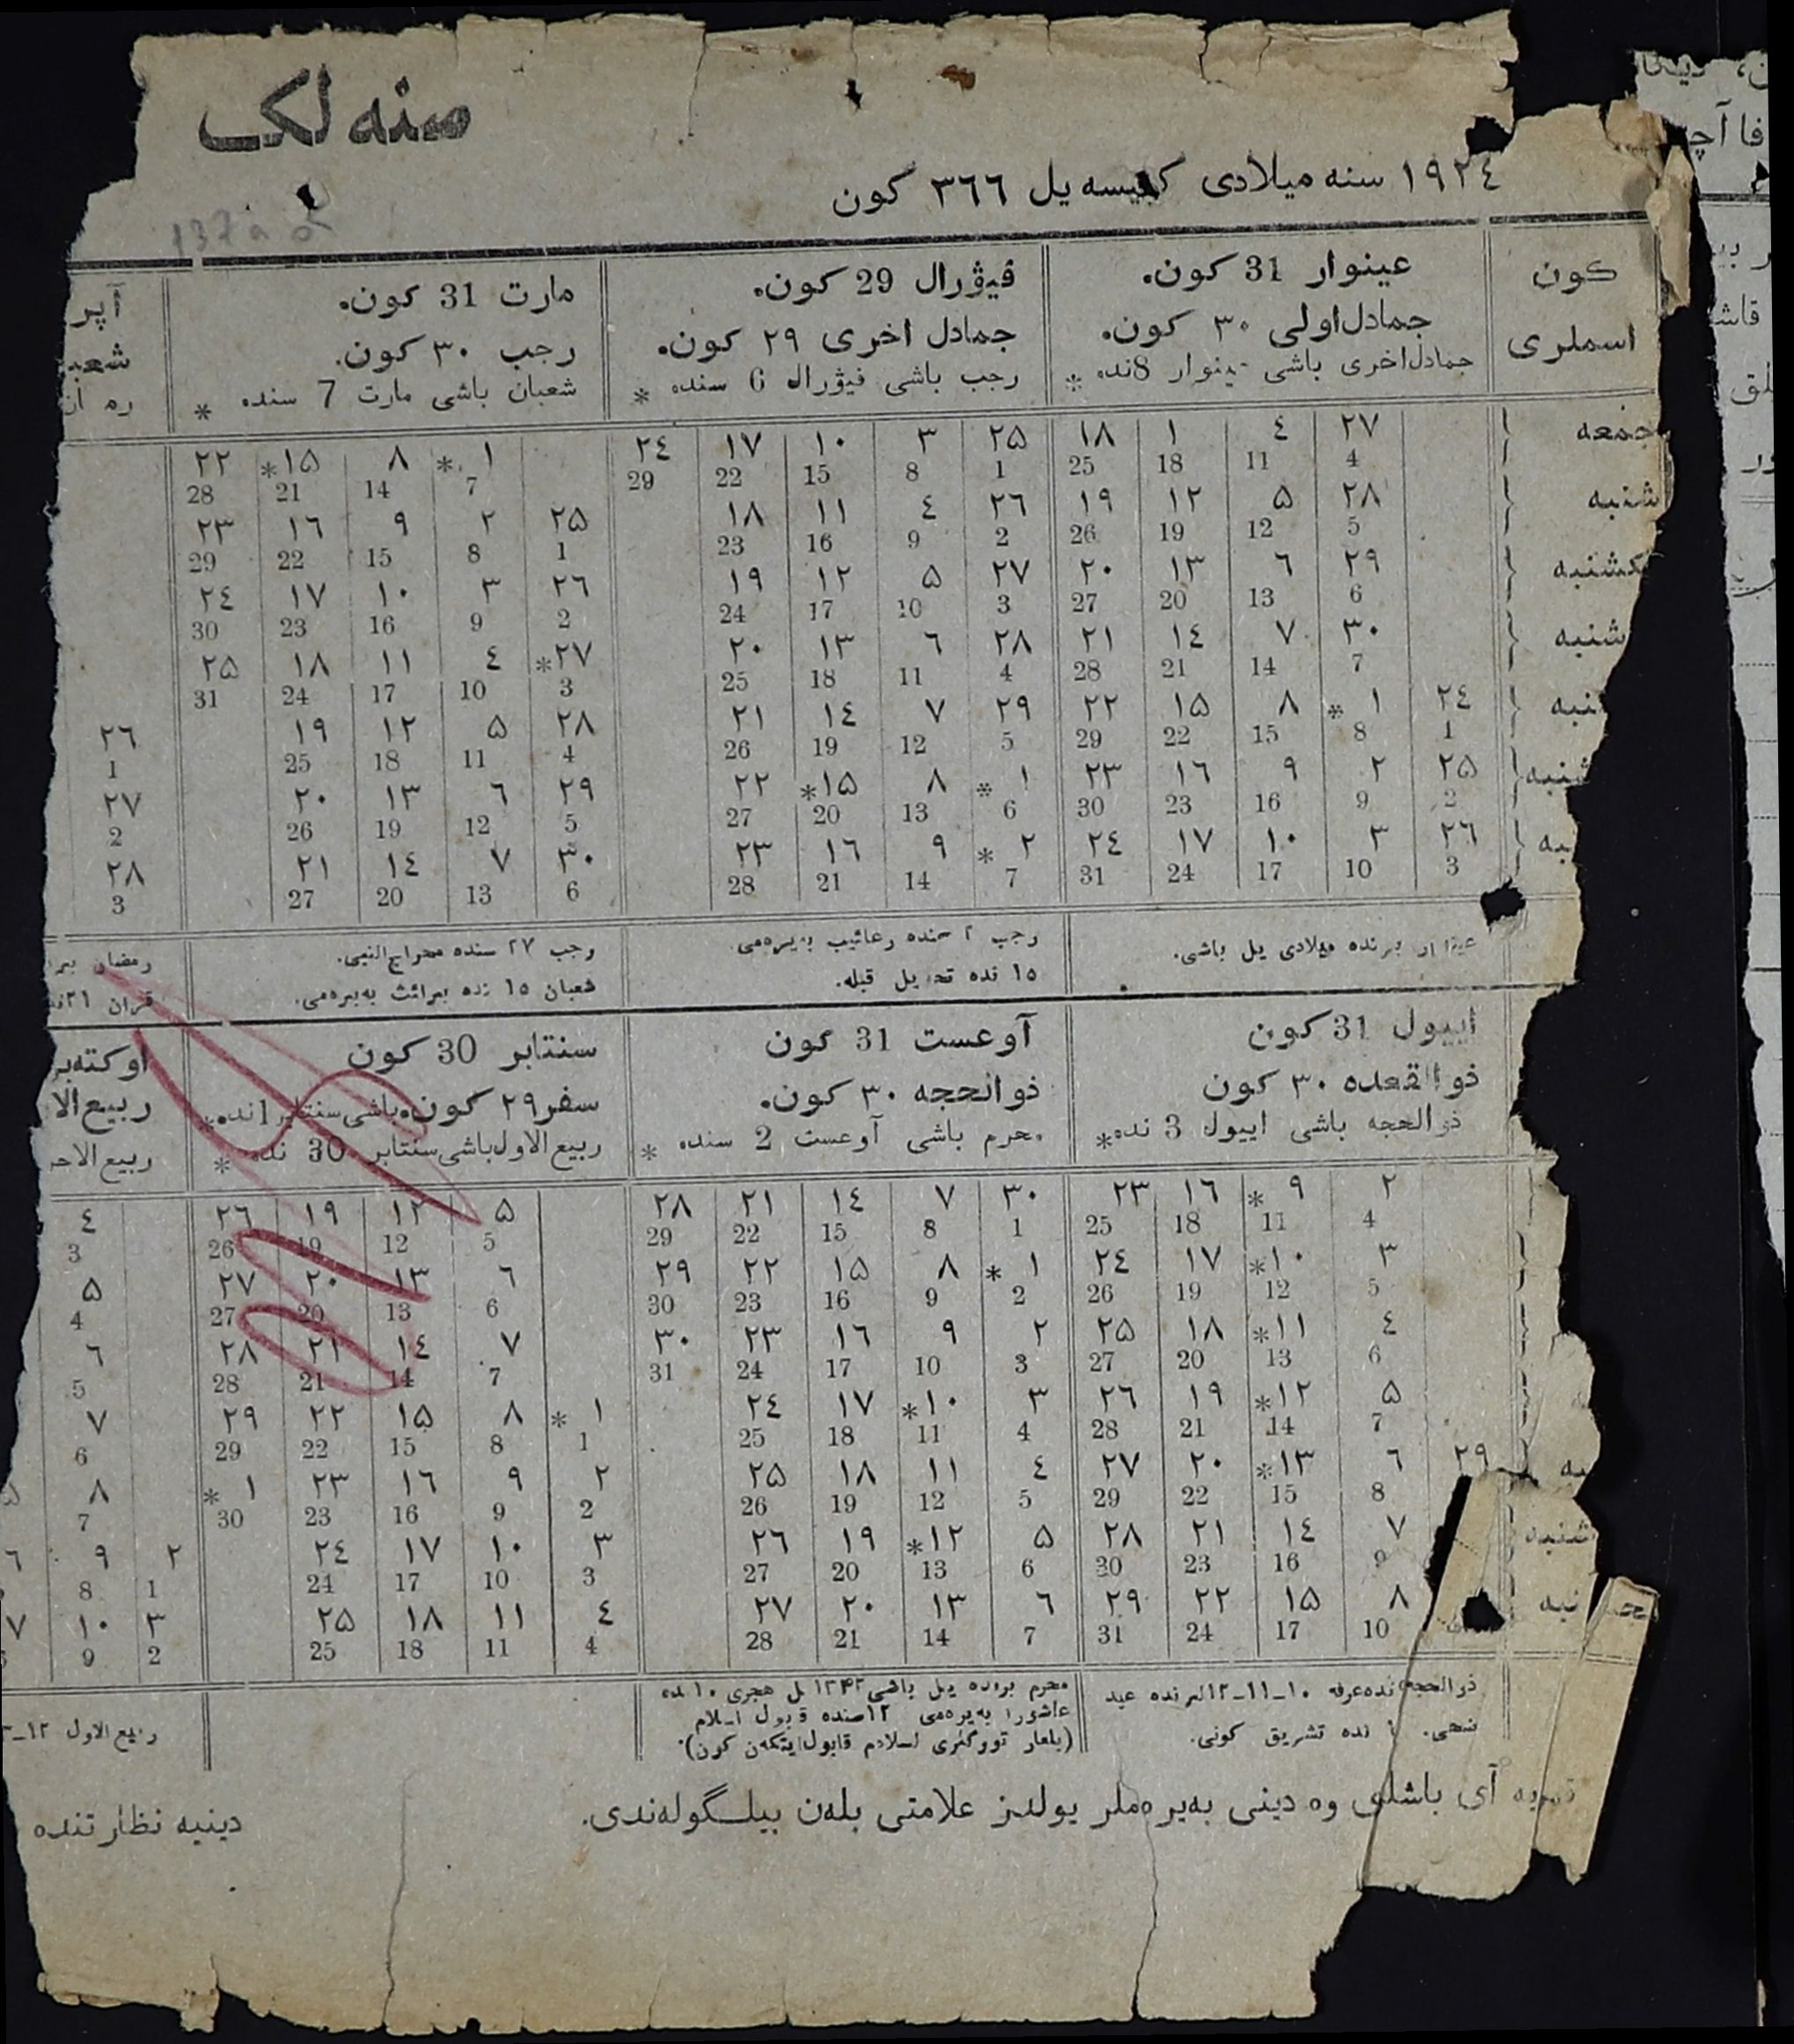 سنه لك
١٩٢٤ سنه ميلادى كبيسه يل ٣٦٦ كون
كون
اسملرى
عينوار 31 كون.
جمادل‌اولى ٣٠ كون.
جمادل‌اخرى باشى عينوار 8نده *
فيۋرال 29 كون.
جمادل اخرى ٢٩ كون.
رجب باشى فيۋرال 6 سنده *
مارت 31 كون.
رجب ٣٠ كون.
شعبان باشى مارت 7 سنده *
آپر
شعب
جمعه ٢٧ ٤ ١ ١٨ ٢٥ ٣ ١٠ ١٧ ٢٤ ١ * ٨ ١٥* ٢٢
4 11 18 25 1 8 15 22 29 7 14 21 28
شنبه ٢٨ ٥ ١٢ ١٩ ٢٦ ٤ ١١ ١٨ ٢٥ ٢ ٩ ١٦ ٢٣
5 12 19 26 2 9 16 23 1 8 15 22 29
كشنبه ٢٩ ٦ ١٣ ٢٠ ٢٧ ٥ ١٢ ١٩ ٢٦ ٣ ١٠ ١٧ ٢٤
6 13 20 27 3 10 17 24 2 9 16 23 30
شنبه ٣٠ ٧ ١٤ ٢١ ٢٨ ٦ ١٣ ٢٠ ٢٧* ٤ ١١ ١٨ ٢٥
7 14 21 28 4 11 18 25 3 10 17 24 31
نبه ٢٤ ١ * ٨ ١٥ ٢٢ ٢٩ ٧ ١٤ ٢١ ٢٨ ٥ ١٢ ١٩ ٢٦
1 8 15 22 29 5 12 19 26 4 11 18 25 1
شنبه ٢٥ ٢ ٩ ١٦ ٢٣ ١ * ٨ ١٥* ٢٢ ٢٩ ٦ ١٣ ٢٠ ٢٧
2 9 16 23 30 6 13 20 27 5 12 19 26 2
به ٢٦ ٣ ١٠ ١٧ ٢٤ ٢ * ٩ ١٦ ٢٣ ٣٠ ٧ ١٤ ٢١ ٢٨
3 10 17 24 31 7 14 21 28 6 13 20 27 3
برنده ميلادى يل باشى.
رجب ٢ سنده رغائيب بەيرەمى.
١٥ نده تحويل قبله.
رجب ٢٧ سنده معراج النبى.
شعبان ١٥ نده برائت بەيرەمى.
رمضان
قران ٢١
ايیول 31 كون
ذوالقعده ٣٠ كون
ذوالحجه باشى اييول 3 نده*
آوعست 31 كون
ذوالحجه ٣٠ كون.
محرم باشى آوعست 2 سنده *
سنتابر 30 كون
سفر ٢٩ كون. باشى سنتابر 1 نده.*
ربيع الاول باشى سنتابر 30 نده *
اوكتەبر
ربيع الا
ربيع الاحر
٢ ٩ * ١٦ ٢٣ ٣٠ ٧ ١٤ ٢١ ٢٨ ٥ ١٢ ١٩ ٢٦ ٤
4 11 18 25 1 8 15 22 29 5 12 19 26 3
٣ ١٠* ١٧ ٢٤ ١ * ٨ ١٥ ٢٢ ٢٩ ٦ ١٣ ٢٠ ٢٧ ٥
5 12 19 26 2 9 16 23 30 6 13 20 27 4
٤ ١١* ١٨ ٢٥ ٢ ٩ ١٦ ٢٣ ٣٠ ٧ ١٤ ٢١ ٢٨ ٦
6 13 20 27 3 10 17 24 31 7 14 21 28 5
٥ ١٢* ١٩ ٢٦ ٣ ١٠* ١٧ ٢٤ ١ * ٨ ١٥ ٢٢ ٢٩ ٧
7 14 21 28 4 11 18 25 1 8 15 22 29 6
به ٢٩ ٦ ١٣* ٢٠ ٢٧ ٤ ١١ ١٨ ٢٥ ٢ ٩ ١٦ ٢٣ ١ * ٨
8 15 22 29 5 12 19 26 2 9 16 23 30 7
شنبه ٧ ١٤ ٢١ ٢٨ ٥ ١٢* ١٩ ٢٦ ٣ ١٠ ١٧ ٢٤ ٢ ٩ ٦
9 16 23 30 6 13 20 27 3 10 17 24 1 8
نبه ٨ ١٥ ٢٢ ٢٩ ٦ ١٣ ٢٠ ٢٧ ٤ ١١ ١٨ ٢٥ ٣ ١٠ ٧
10 17 24 31 7 14 21 28 4 11 18 25 2 9
ذوالحجه نده عرفه ١٠ـ١١ـ١٢لرنده عيد
نده تشريق كونى.
محرم برنده يل باشى ١٣٤٣ هجرى ١٠ نده
عاشورا بەيرەمى ١٢سنده قبول اسلام
(بلعار توركلرى اسلام قابول ايتكەن كون).
ربيع الاول ١٢ـ
آى باشلرى وه دينى بەيرەملر يولدز علامتى بلەن بيلگولەندى.
دينيه نظارتنده